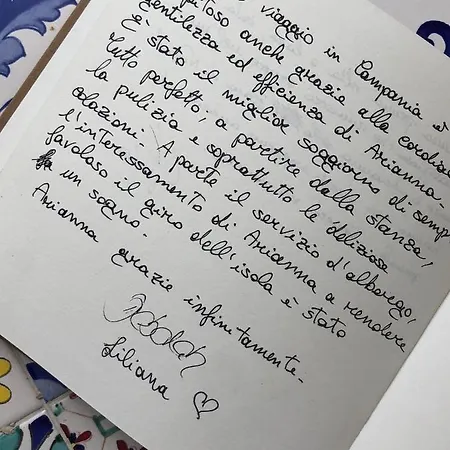 viaggio in Campania è
anche grazie alla cordial
gentilezza ed efficienza di Arianna.
è stato il miglior soggiorno di semp
Tutto perfetto, a partire dalla stanza,
la pulizia e soprattutto le deliziose
colazioni. A parte il servizio d'albergo,
l'interessamento di Arianna a rendere
favoloso il giro dell'isola è stato
un sogno.
Arianna grazie infinitamente.
Liliana ♡